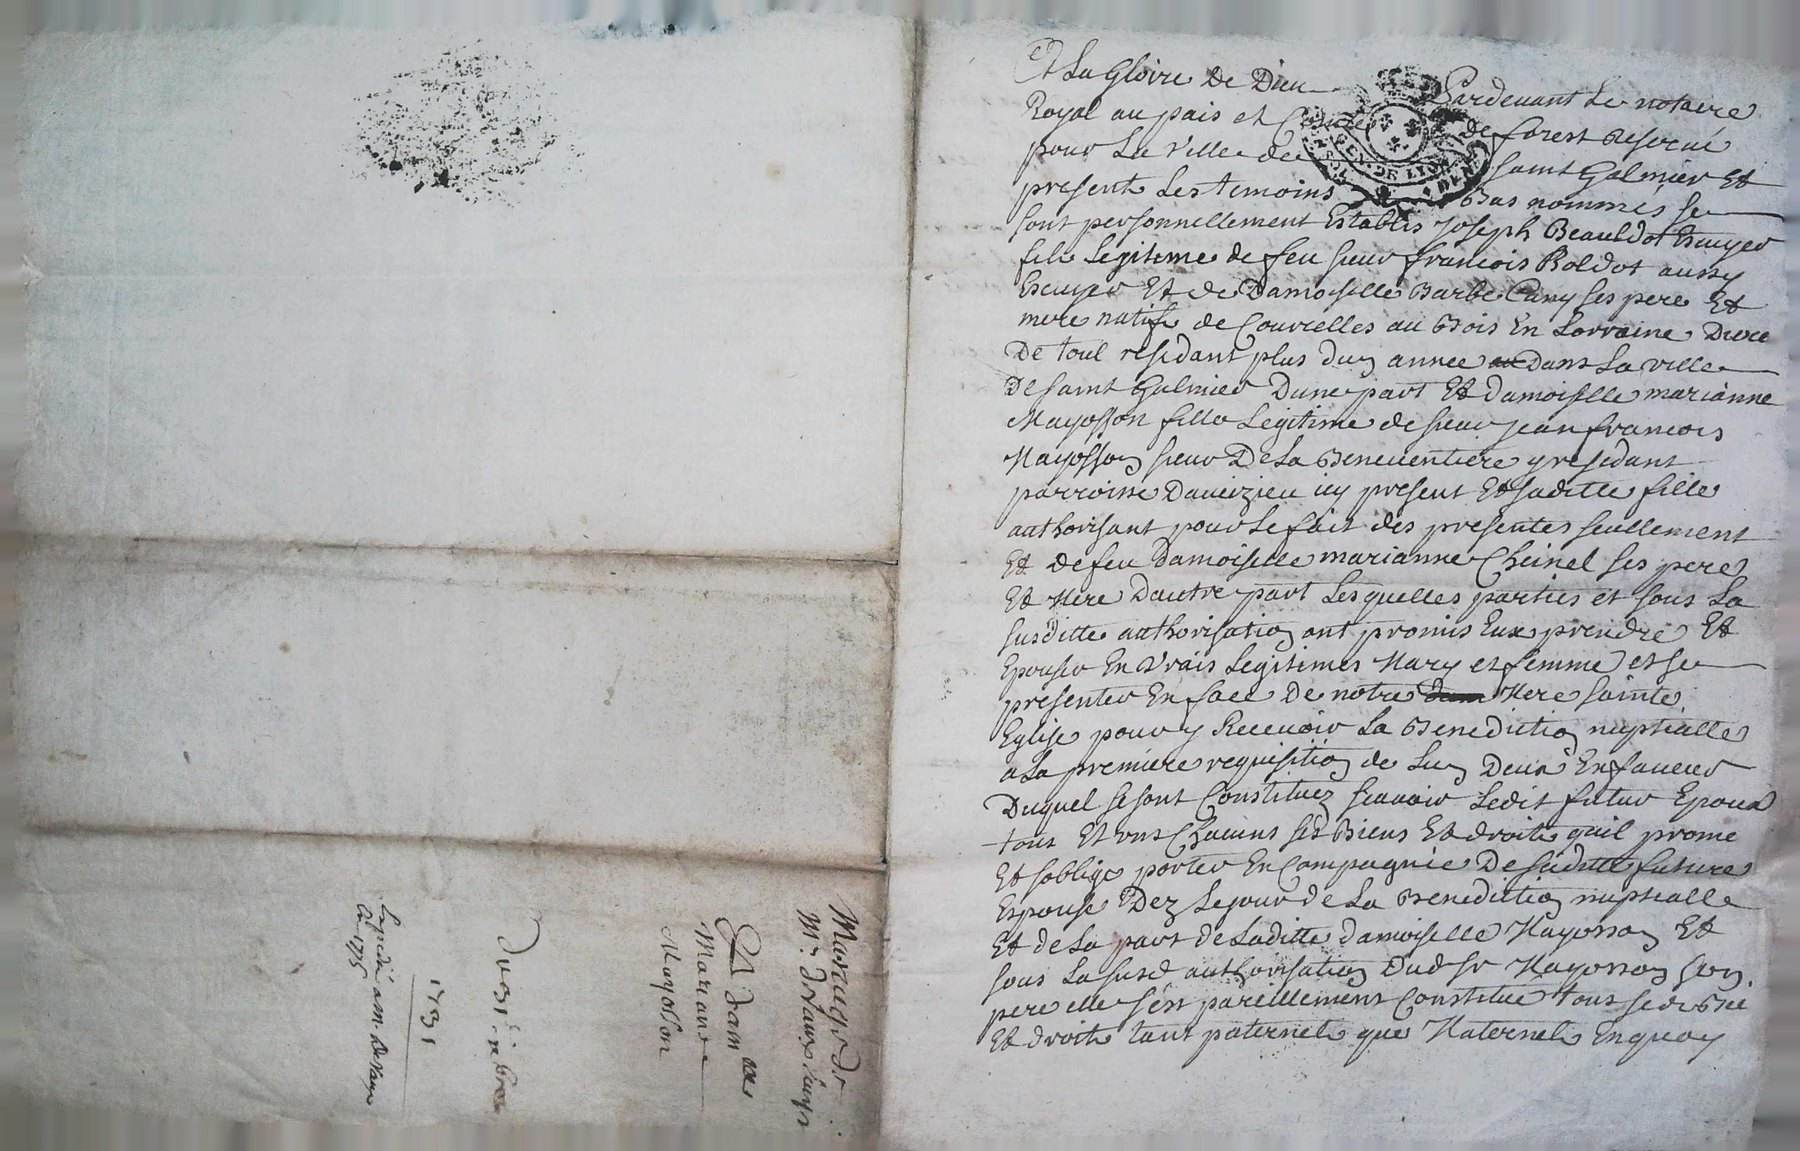 A La Gloire De Dieu Pardevant Le notaire
Royal au pais et Comté de forest reservé
pour La Ville de saint Galmier Et
presents Les temoins Bas nommés se
sont personnellement Establis Joseph Beauldot Escuyer
fils Legitime de feu sieur francois Boldot aussy
Escuyer Et de Damoiselle Barbe Cuny ses pere Et
mere natif de Courcelles au Bois En Lorraine Dioce
De toul residant plus dun année dans La ville
De saint Galmier Dune part Et damoiselle marianne
Mayosson fille Legitime de sieur jean francois
Mayosson sieur De La Beneventiere y residant
parroisse Daveizieu icy present Et saditte fille
authorisant pour Le fait des presentes seullement
Et de feu Damoiselle marianne Cheinel ses pere
Et Mere Dautre part Lesquelles parties et sous La
susditte authorisation ont promis Eux prendre Et
Epouser En vrais Legitimes Mary et femme et se
presenter En face De notre Mere sainte
Eglise pour y Recevoir La Benediction nuptialle
a La premiere requisition de Lun Deux En faveur
Duquel se sont Constituez scavoir Ledit futur Epoux
tous Et uns Chacuns ses Biens Et droits quil prome
Et soblige porter En Compagnie De saditte future
Espouse Dez Le jour de La Benediction nuptialle
Et de La part de Laditte damoiselle Mayosson Et
sous La susd authorisation Dud sr Mayosson son
pere elle sest pareillement Constitué tous ses Bie
Et droits tant paternels que Maternels En quoy
Mariage de
Mr
Et dam lle
Marianne
Mayosson
Du
1731